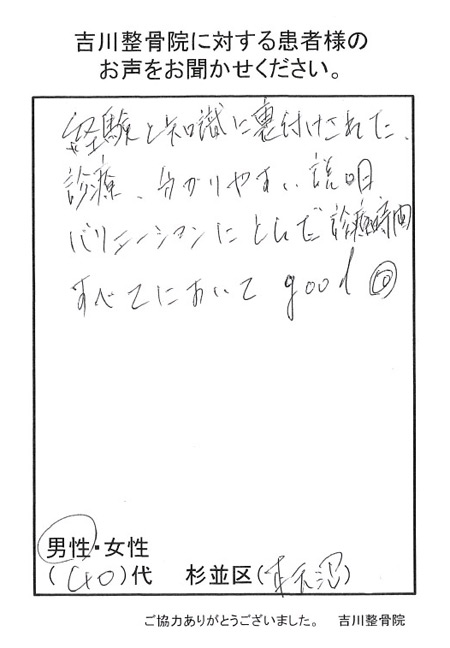 吉川整骨院に対する患者様の
お声をお聞かせください。
経験と知識に裏付けされた、
診療、分かりやすい説明
バリエーションにとんだ診療時間
すべてにおいてgood◎
男性・女性
(40)代 杉並区(本天沼)
ご協力ありがとうございました。 吉川整骨院